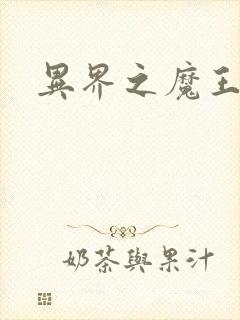 異界之魔王
奶茶與果汁